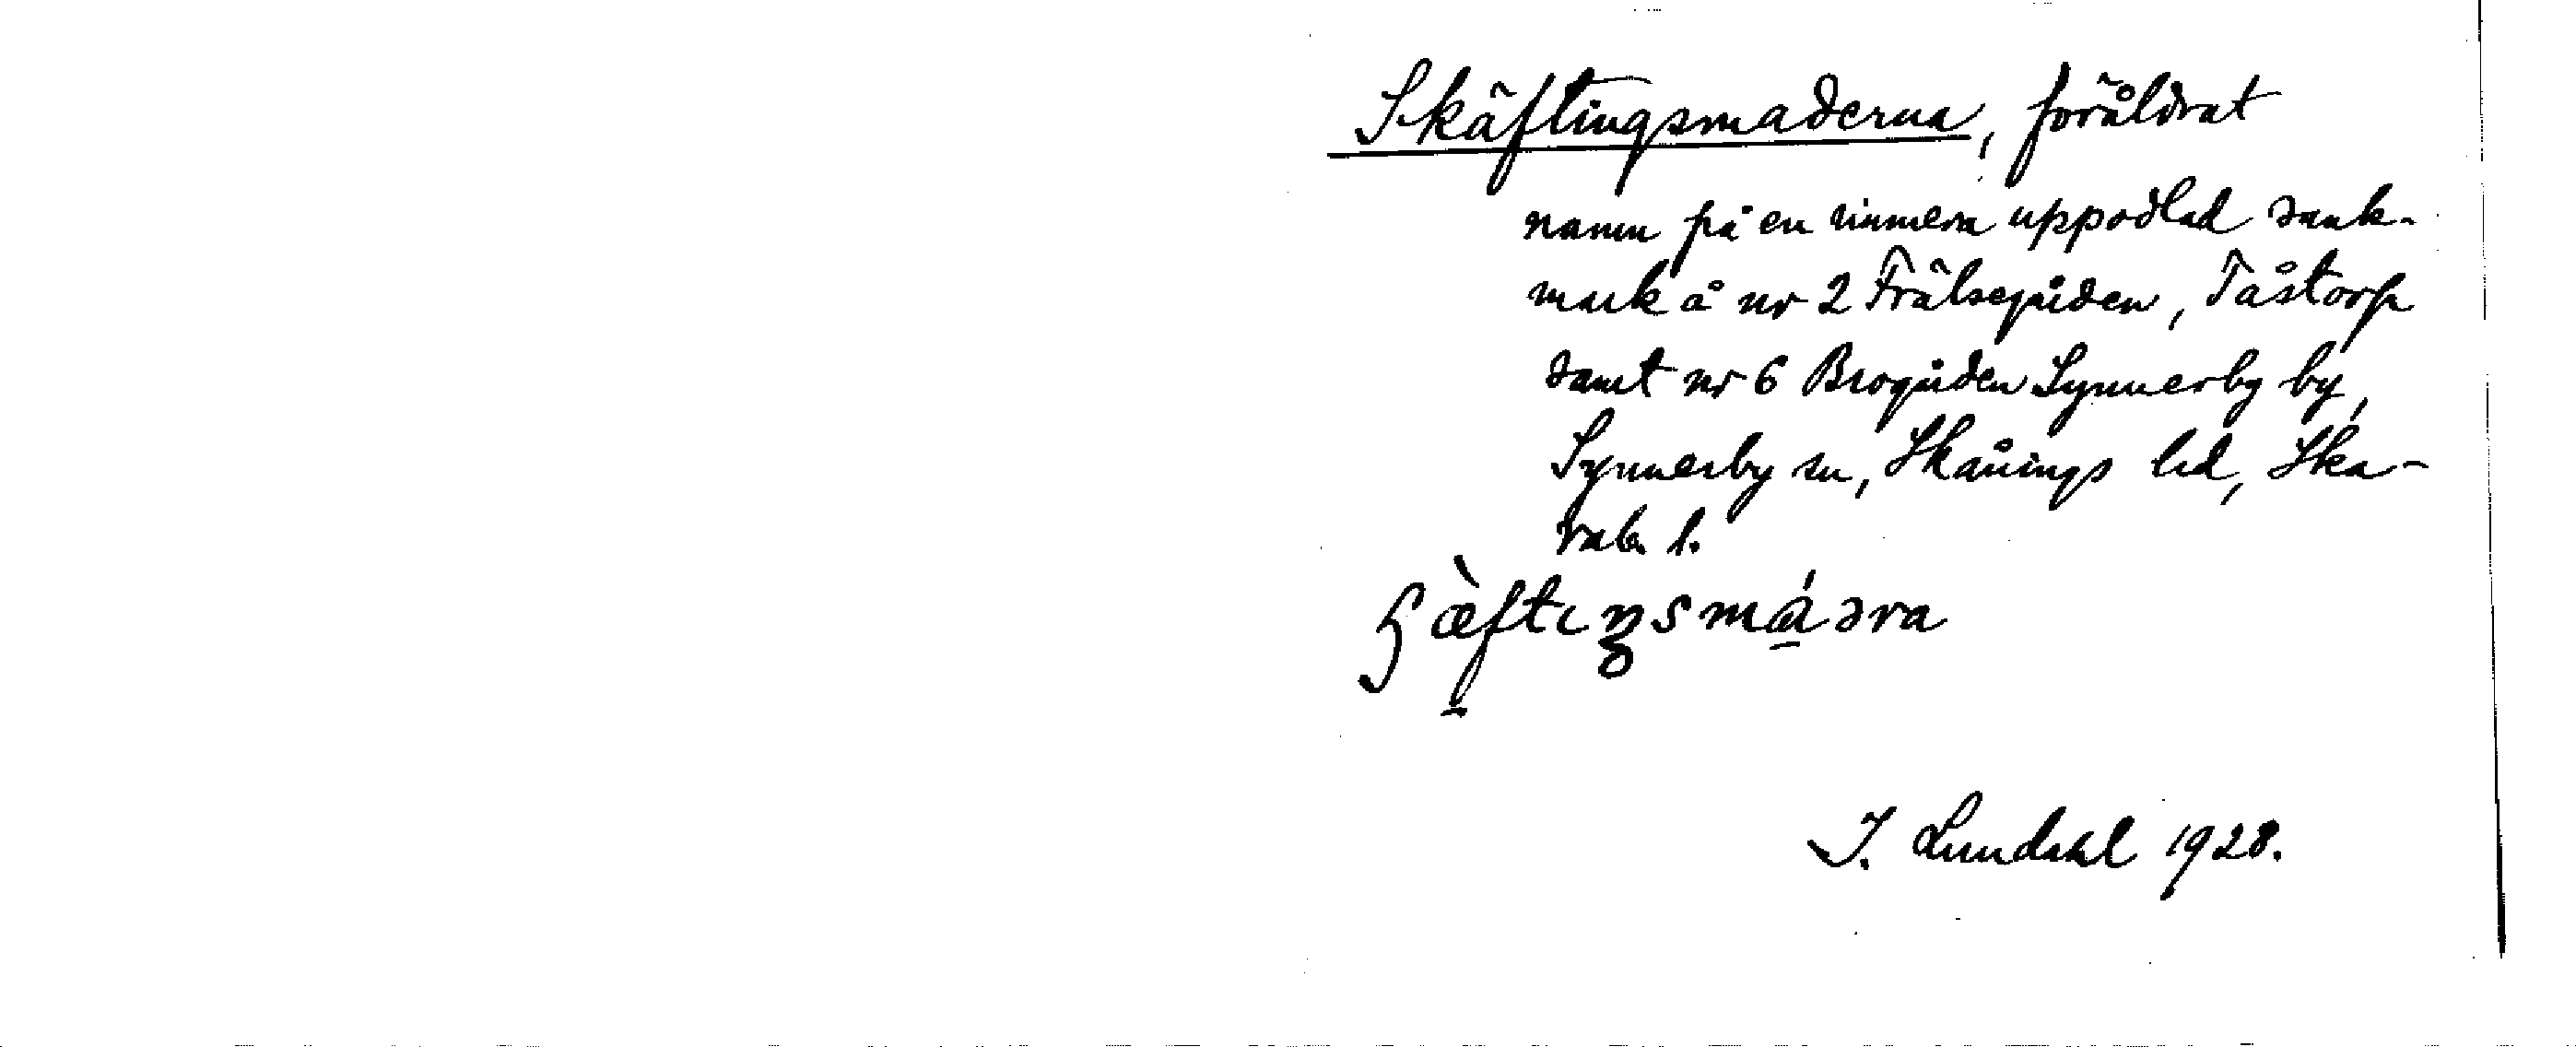 Skäftingsmaderna, föråldrat
namn på en numera uppodlad sank-
mark å nr 2 Frälsegården, Tåstorp
samt nr 6 Brogården Synnerby by,
Synnerby sn, Skånings hd, Ska-
rab. l.
I. Lundahl 1928.